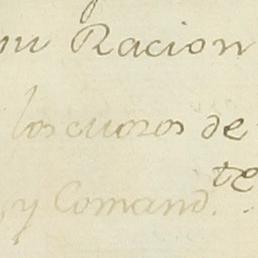 su Racion
los cueros de
y Comand.te